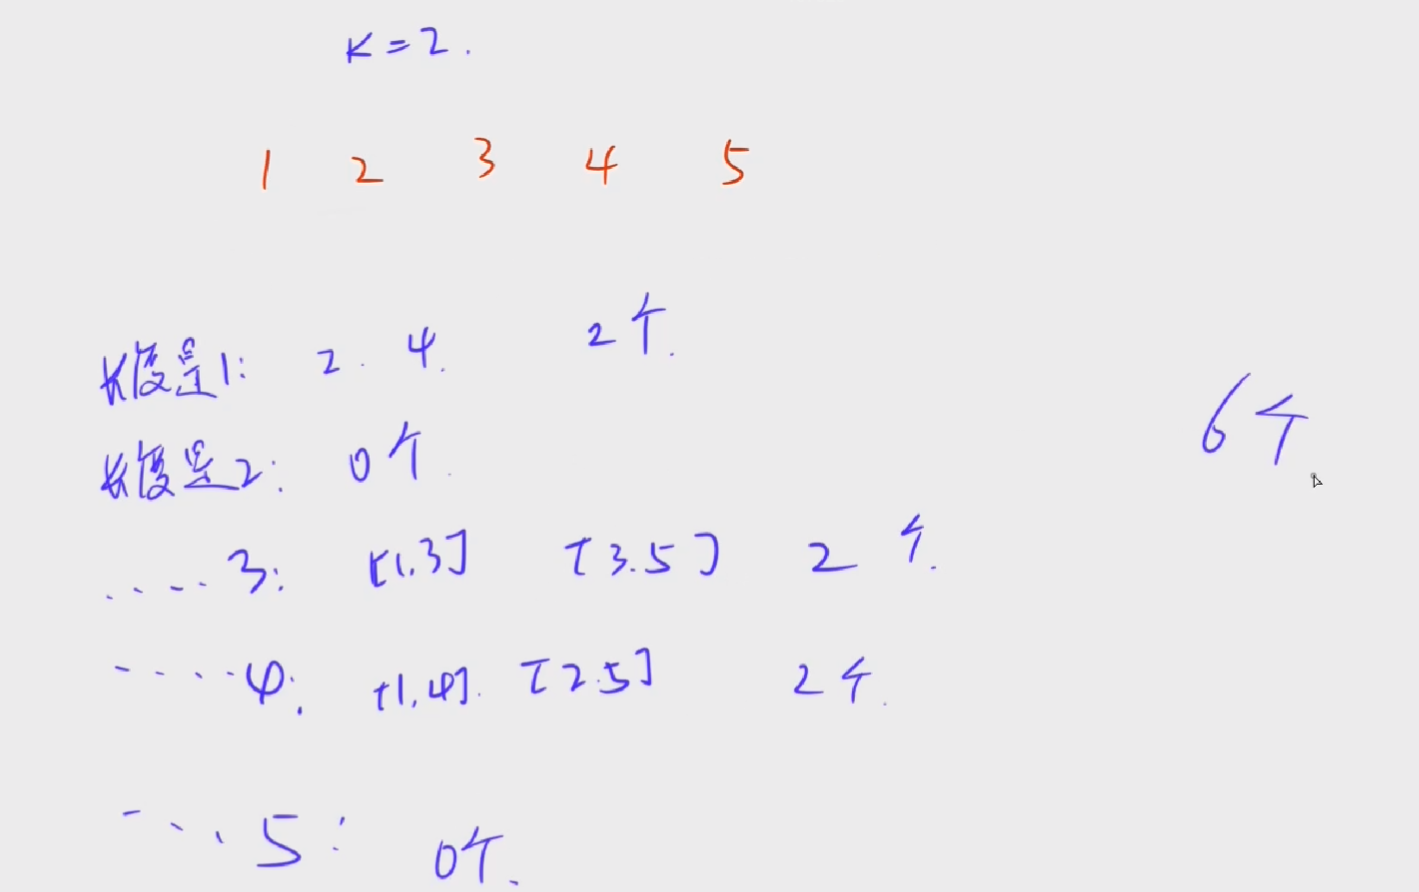 K=2.
1 2 3 4 5
长度是1: 2. 4. 2个.
长度是2: 0个.
....3: [1,3] [3.5] 2个.
....4: [1,4]. [2.5] 2个.
...5: 0个.
6个